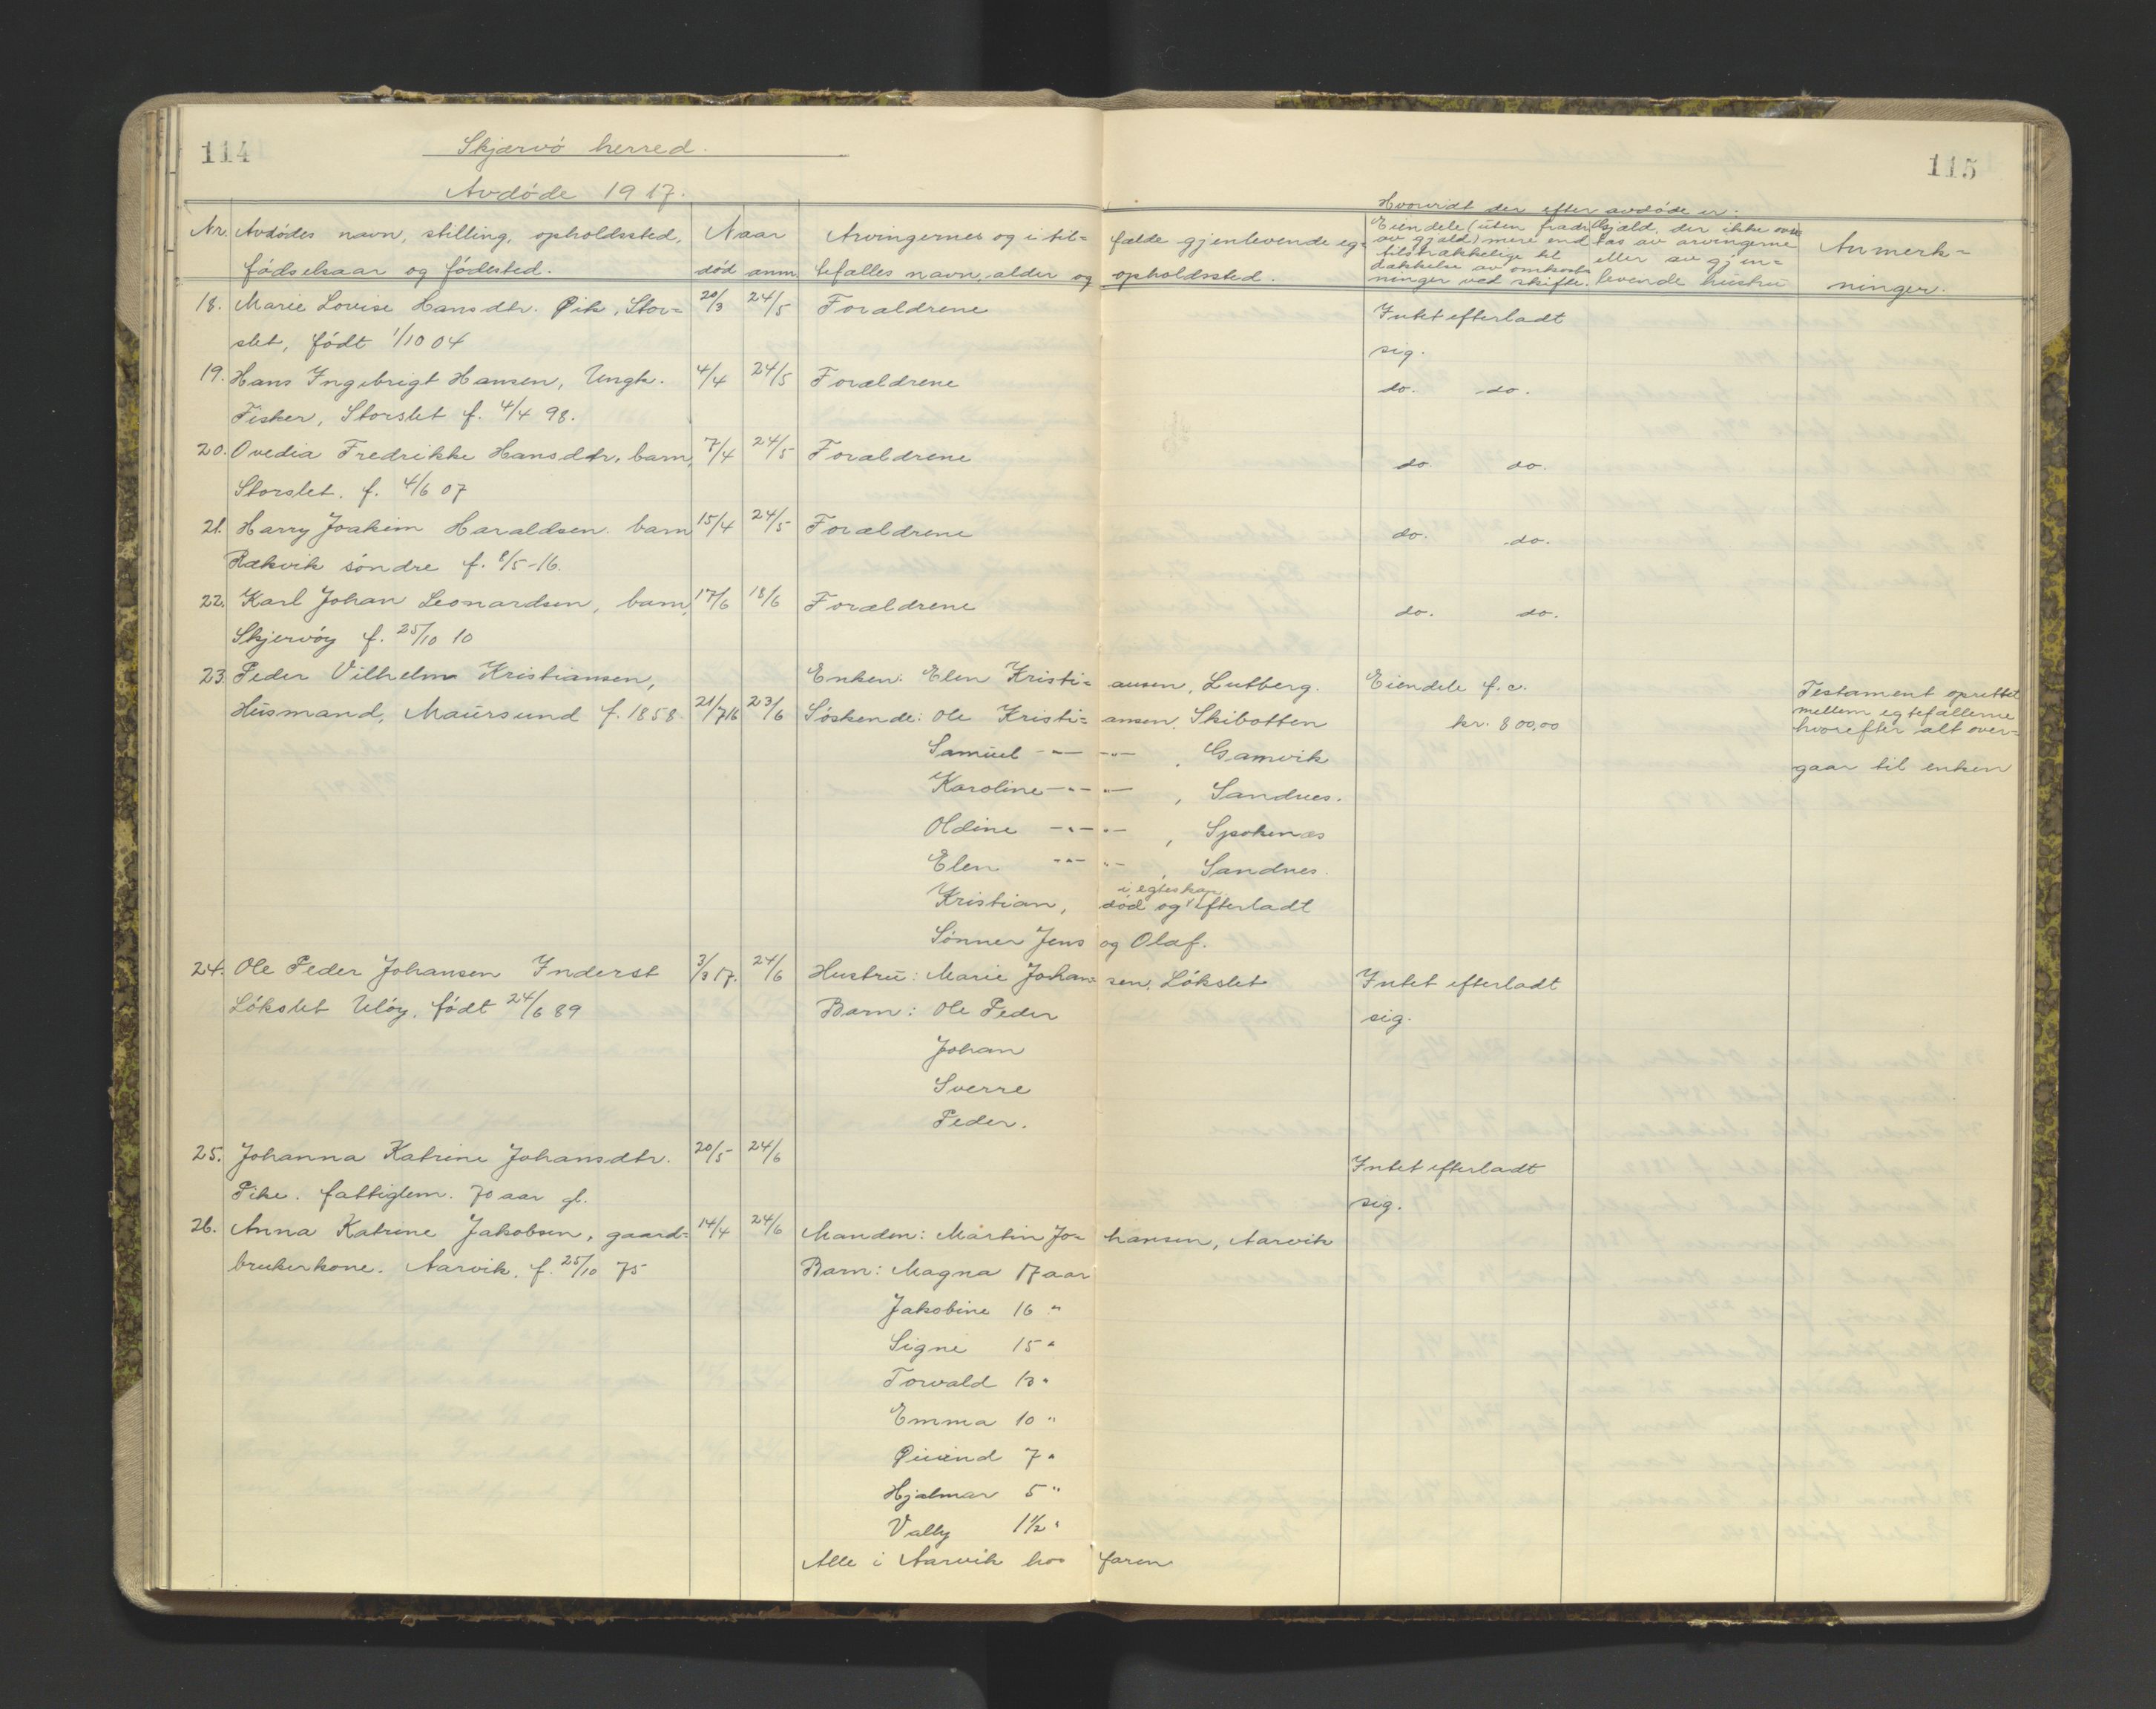 114
Skjærvö herred.
115
Avdöde 1917.
Hvorvidt der efter avdöde er:
Nr. Avdödes navn, stilling, opholdssted, födselsaar og födested.
Naar
död anm.
Arvingernes og i tilfælde gjenlevende eg=
tefælles navn, alder og opholdssted.
Eiendele (uten fradr.
av gjæld) mere end
tilstrækkelige til
dækkelse av omkost=
ninger ved skifte.
Gjæld, der ikke over
tas av arvingerne
eller av gjen=
levende hustru
Anmerk=
ninger.
18. Marie Lovise Hansdtr. Pik, Stor= 20/3 24/5 Forældrene Intet efterladt
slet, födt 1/10 04 sig.
19. Hans Ingebrigt Hansen, Ungk. 4/4 24/5 Forældrene do. do.
Fisker, Storslet f. 4/4 98.
20. Ovedia Fredrikke Hansdtr, barn, 7/4 24/5 Forældrene do. do.
Storslet. f. 4/6 07
21. Harry Joakim Haraldsen. barn 15/4 24/5 Forældrene do. do.
Rækvik söndre f. 8/5-16.
22. Karl Johan Leonardsen, barn, 17/6 18/6 Forældrene do. do.
Skjervöy f. 25/10 10
23. Peder Vilhelm Kristiansen, Enken: Elen Kristi= ansen, Lutberg. Eiendele f. c. Testament oprettet
Husmand, Maursund f. 1858 21/7 16 23/6 Söskende: Ole Kristi= ansen, Skibotten kr. 800,00 mellem egtefællerne
hvorefter alt over=
Samuel -"- -"- , Gamvik gaar til enken
Karoline -"- -"- , Sandnes.
Oldine -"- -"- , Spokenæs
Elen -"- -"- , Sandnes.
i egteskap
Kristian, död og efterladt
Sönner Jens og Olaf.
24. Ole Peder Johansen Inderst 3/3 17. 24/6 Hustru: Marie Johan= sen, Lökslet Intet efterladt
Lökslet Ulöy, födt 24/6 89 Barn: Ole Peder sig.
Johan
Sverre
Peder.
25. Johanna Katrine Johansdtr. 20/5 24/6 Intet efterladt
Pike. fattiglem. 70 aar gl. sig.
26. Anna Katrine Jakobsen, gaard= 14/4 24/6 Manden: Martin Jo= hansen, Aarvik
brukerkone. Aarvik, f. 25/10 75 Barn: Magna 17 aar
Jakobine 16 "
Signe 15 "
Torvald 13 "
Emma 10 "
Øivind 7 "
Hjalmar 5 "
Vally 1½ "
Alle i Aarvik hos faren